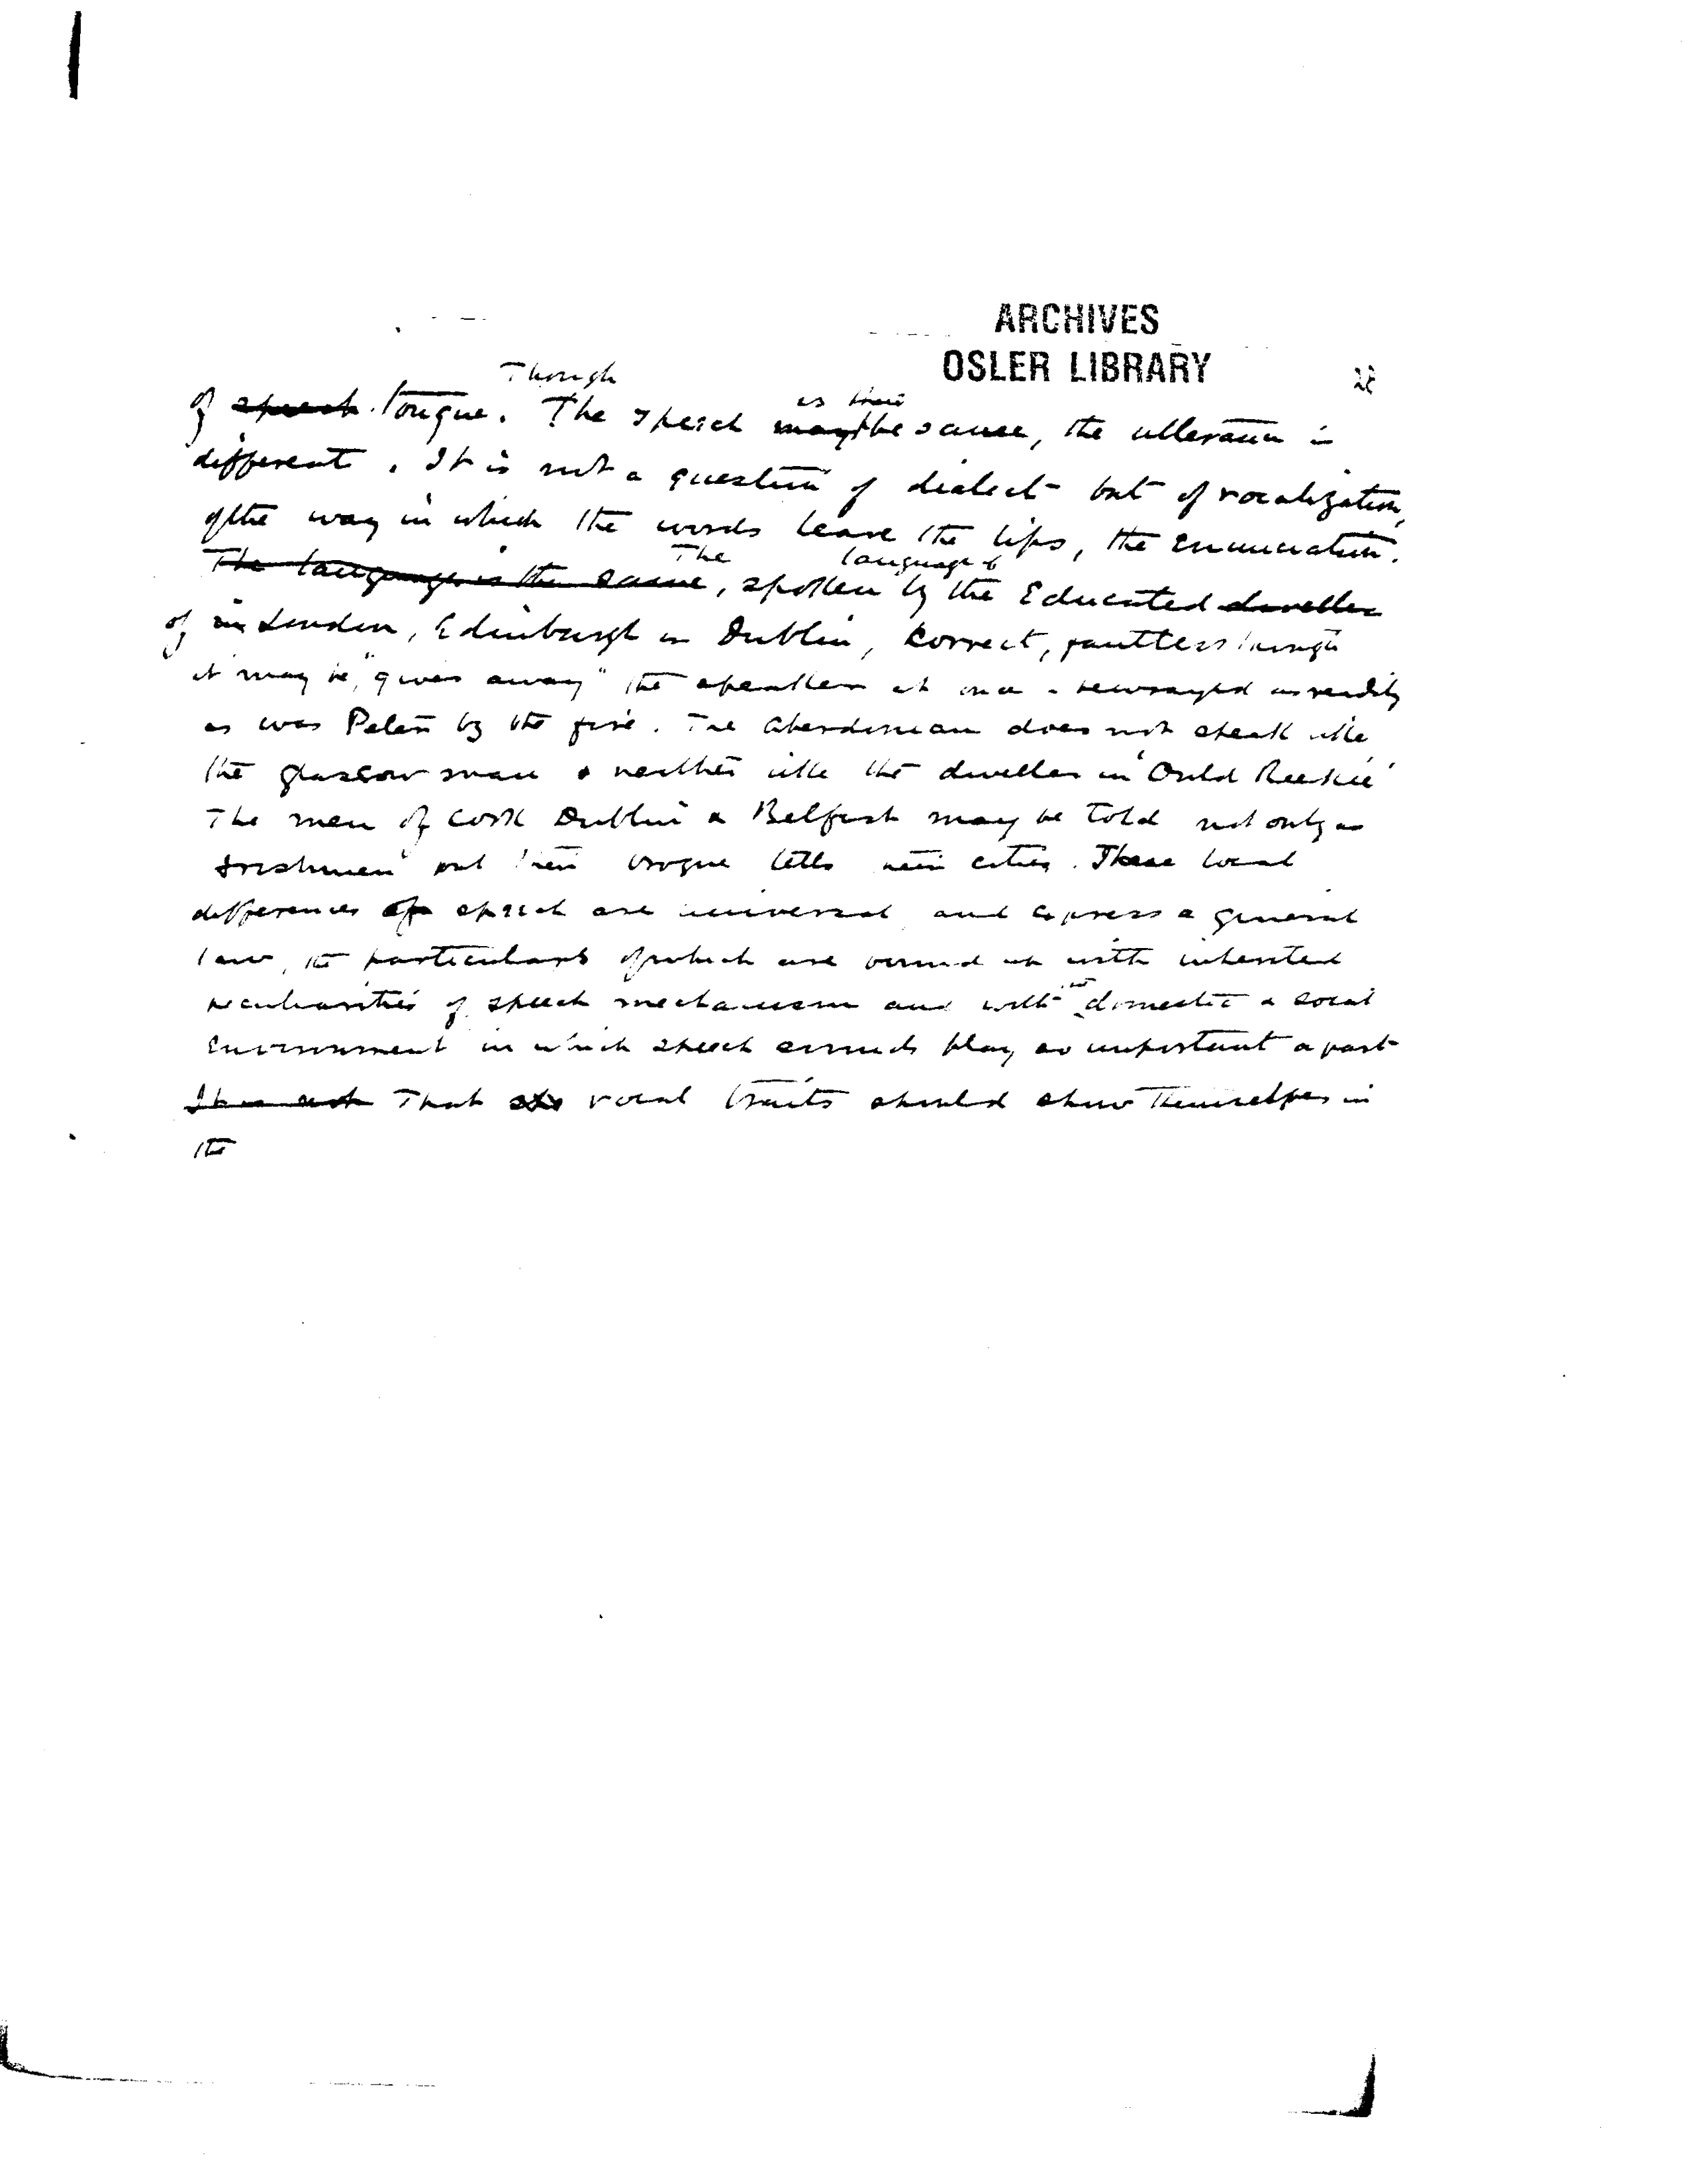 ARCHIVES
OSLER LIBRARY
Though
is their
of speech tongue. The speech may be the same, the utterance is
different. It is not a question of dialect but of vocalization,
of the way in which the words leave the lips, the enunciation.
The language of
The language is the same, spoken by the Educated dweller
of in London, Edinburgh or Dublin, correct, faultless though
it may be, "gives away" the speaker at once - bewrayed as readily
as was Peter by the fire. The Aberdonian does not speak like
the Glasgow man & neither like the dweller in 'Ould Reekie'
The men of Cork Dublin & Belfast may be told not only as
Irishmen but their brogue tells their cities. These local
differences of speech are universal and express a general
law, the particulars of which are bound up with inherited
peculiarities of speech mechanism and with the domestic & social
Environment in which speech sounds play so important a part
It is not That vocal traits should show themselves in
the